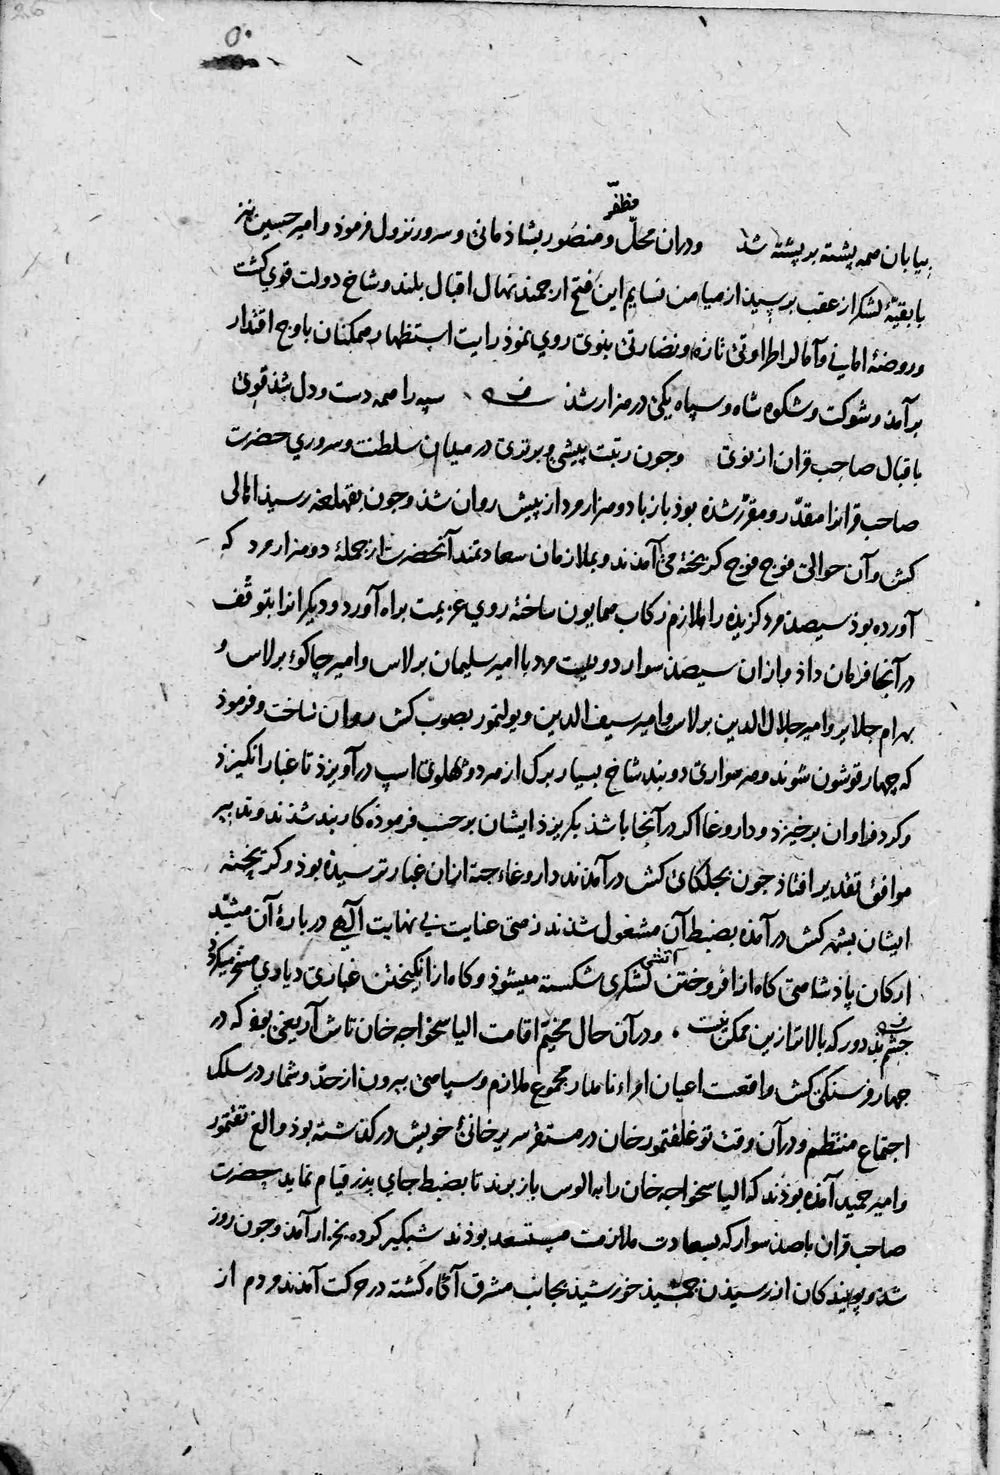 26
۵۰
مظفّر
بیابان همه پشته بر پشته شد و دران محلّ و منصور بشاذمانی و سرور نزول فرموذ و امیر حسین نیز
با بقیّهٔ لشکر از عقب برسیذ از میامن نسایم این فتح ارجمند نهال اقبال بلند و شاخ دولت قوی کشت
و روضهٔ امانی و آمال را طراوتی تازه و نضارتی بنوی روی نموذ رایت استظهار همکنان باوج اقتدار
برآمذ و شوکت و شکوه شاه و سپاه یکی در هزار شذ سپه را همه دست و دل شذ قوی
باقبال صاحب قران از نوی و جون رتبت پیشی و برتری در میدان سلطنت و سروری حضرت
صاحب قرانرا مقدّر و مقرّر شذه بوذ باز با دو هزار مرد از پیش روان شذ و جون بقهلغه رسیذ اهالی
کش و آن حوالی فوج فوج کریخته می آمدند و بملازمان سعادتمند آنحضرت از جملهٔ دو هزار مرد که
آورده بوذ سیصذ مرد کزیذه را ملازم رکاب همایون ساخته روی عزیمت براه آورد و دیکرانرا بتوقف
در آنجا فرمان داذ و ازان سیصذ سوار دویست مرد با امیر سلیمان برلاس و امیر جاکوی برلاس و
بهرام جلایر و امیر جلال الدین برلاس و امیر سیف الدین و یولتمور بصوب کش روان ساخت و فرموذ
که چهار قوشون شوند و هر سواری دو بند شاخ بسیار برک از هر دو پهلوی اسپ در آویزذ تا غبار انکیزذ
و کرد فراوان برخیزد و داروغا اکر در آنجا باشذ بکریزذ ایشان برحسب فرموذه کار بند شذند و تدبیر
موافق تقدیر افتاذ جون بجلکای کش درآمذند داروغا جته ازان غبار ترسیذه بوذ و کریخته
ایشان بشهر کش درآمذه بضبط آن مشغول شذند زهی عنایت بی نهایت آلهی دربارهٔ آن مشیّد
ارکان پاذشاهی کاه از افروختن آتشی لشکری شکسته میشوذ و کاه از انکیختن غباری دیاری مسخّر میکردد
جشم بد دور که بالاتر ازین ممکن نیست و در آن حال مخیّم اقامت الیاسخواجه خان تاش آریغی بوذ که در
جهار فرسنکی کش واقعست اعیان امراء نامدار مجموع ملازم و سپاهی بیرون از حدّ و شمار در سلک
اجتماع منتظم و در آن وقت توغلغتمور خان در مستقر سریر خانی خویش درکذشته بوذ و الغ تقتمور
و امیر حمید آمذه بوذند که الیاسخواجه خان را به الوس باز برند تا بضبط جای پذر قیام نماید حضرت
صاحب قران با صذ سوار که بسعادت ملازمت مستسعد بوذند شبکیر کرده بخزار آمذ و جون روز
شذ و پویندکان از رسیذن جمشیذ خورشیذ بجانب مشرق آکاه کشته در حرکت آمذند مردم از